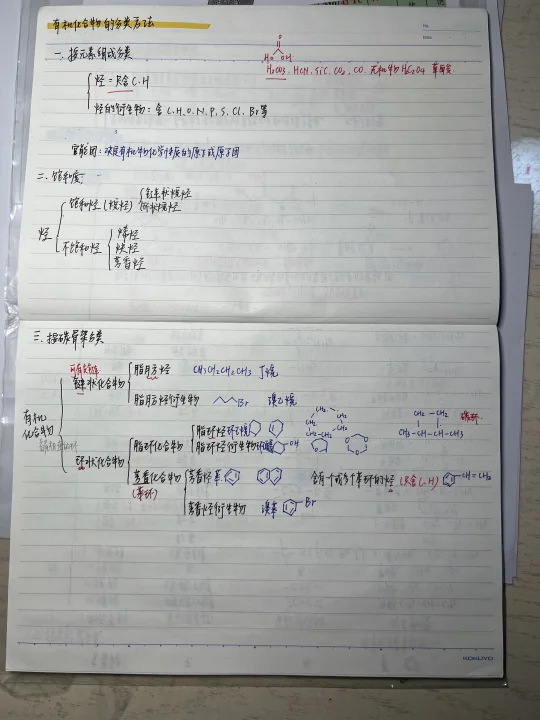 有机化合物的分类方法
No.
Date
一、按元素组成分类
H₂CO₃、HCN、SiC、CO₂、CO 无机物 H₂C₂O₄ 草酸
烃=只含C.H
烃的衍生物:含C、H、O、N、P、S、Cl、Br等
官能团:决定有机物化学性质的原子或原子团
二、饱和度
烃
饱和烃(烷烃)
链状烷烃
环状烷烃
不饱和烃
烯烃
炔烃
芳香烃
三、按碳骨架分类
可有支链
有机化合物
链状化合物
脂肪烃 CH₃CH₂CH₂CH₃ 丁烷
脂肪烃衍生物 Br 溴乙烷
环状化合物
脂环化合物
脂环烃 环己烷
脂环烃衍生物 OH
CH₂ CH₂ CH₂ CH₂ CH₂
CH₂—CH₂
CH—CH—CH—CH₃
碳环
芳香化合物
(苯环)
芳香烃 苯
含有一个或多个苯环的烃(只含C.H) CH=CH₂
芳香烃衍生物 溴苯 Br
KOKUYO